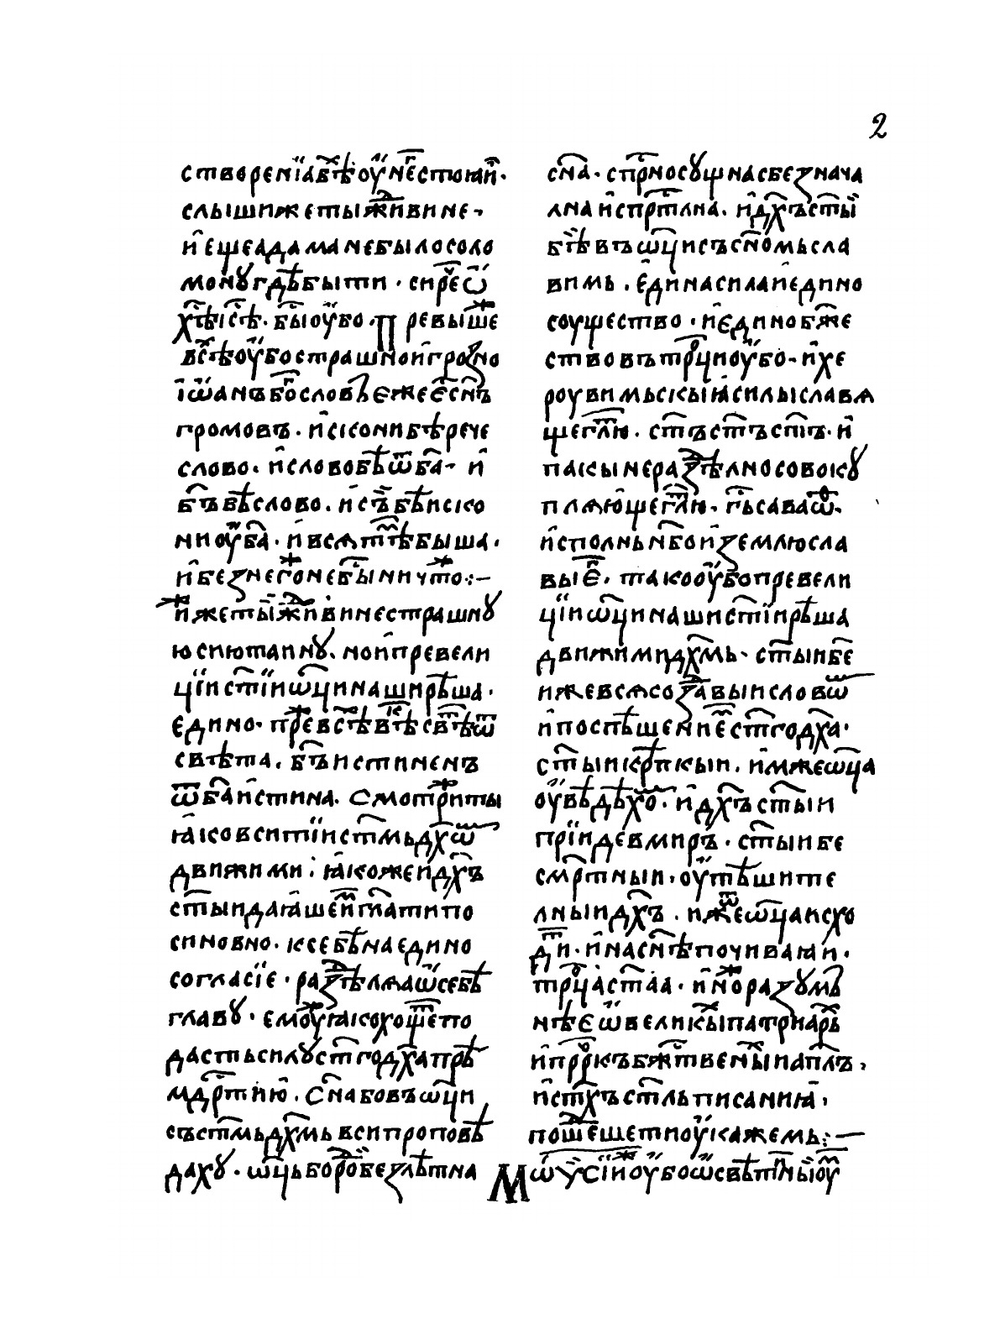 2
створенїавѣоу҆нечестюаи҆·
слышижетыживине·
и҆ещеадаманебылосоло
монꙋгдѣбыти· сирѣѿ
хтѣ·бы̀оу҆бо·превыше
всѣоу҆бострашнои҆грозно
їѡ҆анъбг҃ословъежеес҃нъ
громовъ· и҆скониб҄ѣрече
слово· и҆словобѣѿб҃а· и҆
б҃ъбѣслово· и҆съ́бѣиско
ниоу҆б҃а· и҆всѧтѣмбыша·
и҆безнегонебыничто:~
и҆жетыживинестрашнꙋ
юсиютаинꙋ· нои҆превели
цїист҃їиѡ҆ц҃инаширѣша·
едино· превсѣвѣсвѣѿ
свѣта· б҃ъистиненъ
ѿб҃аи҆стина· Смотриты
ꙗ҆ковситїист҃мьдх҃ѡⷨ
движими· ꙗ҆кожеидх҃ъ
ст҃ыидаꙗ҆шеи҆мгл҃атипо
синовно· ксебѣнаедино
согласїе· раздѣлѧаѿсебѣ
главꙋ· емоу҆жꙗкохощетпо
дастьсилꙋст҃годх҃апрѣ
мдⷭ҇ртию҆· С҃набовъѡ҆ц҃и
съст҃мьдх҃мьвсипроповѣ
дахꙋ· ѡ҆ц҃ьбородбезлѣтна
с҃на· спрⷭ҇носꙋщнасбезнача
лнаи҆спрⷭ҇тлна· и҆дх҃ъст҃ы
б҃ѣвъѡ҆ц҃исъс҃номьсла
вимь· е҆динасилаи҆едино
соущество· и҆единобж҃е
ствовътрⷪ҇циоу҆бо· и҆хе
роувимьскыꙗсилыславѧ
щегл҃ю· ст҃ъст҃ъст҃ъ· и҆
пакынераздѣлносовокꙋ
плѧю҆щегл҃ю· г҃ьсаваѡѳ·
и҆сполньнб҃ои҆землюсла
выЕ҆· такооу҆бопревели
цїиѡ҆ц҃инашист҃їирѣша
движимидх҃мь· ст҃ыибе҃
ижевсѧсоздавыисловѡⷨ
и҆поспѣшениемст҃годх҃а·
ст҃ыикрѣпкыи· и҆мжеѡ҆ц҃а
оу҆вѣдѣхо҆м· и҆дх҃ъст҃ыи
прїидевмиръ· ст҃ыибе
смр҃тныи· оу҆тѣшите
лныидх҃ъ· и҆жеѿѡ҆ц҃аисхо
дит· и҆нас҃нѣпочиваꙗи·
трⷪ҇цаст҃аа· и҆норазꙋмѣ
нѣеѿвеликыхпатриархъ
и҆прⷪ҇ркъбжⷭ҇твеныхиап҃лъ·
и҆стх҃ъст҃льписаниꙗ·
пошедшетноу҆кажемь:~
Мѡѵсїижоу҆боѿсвѣтлныїоу҆м